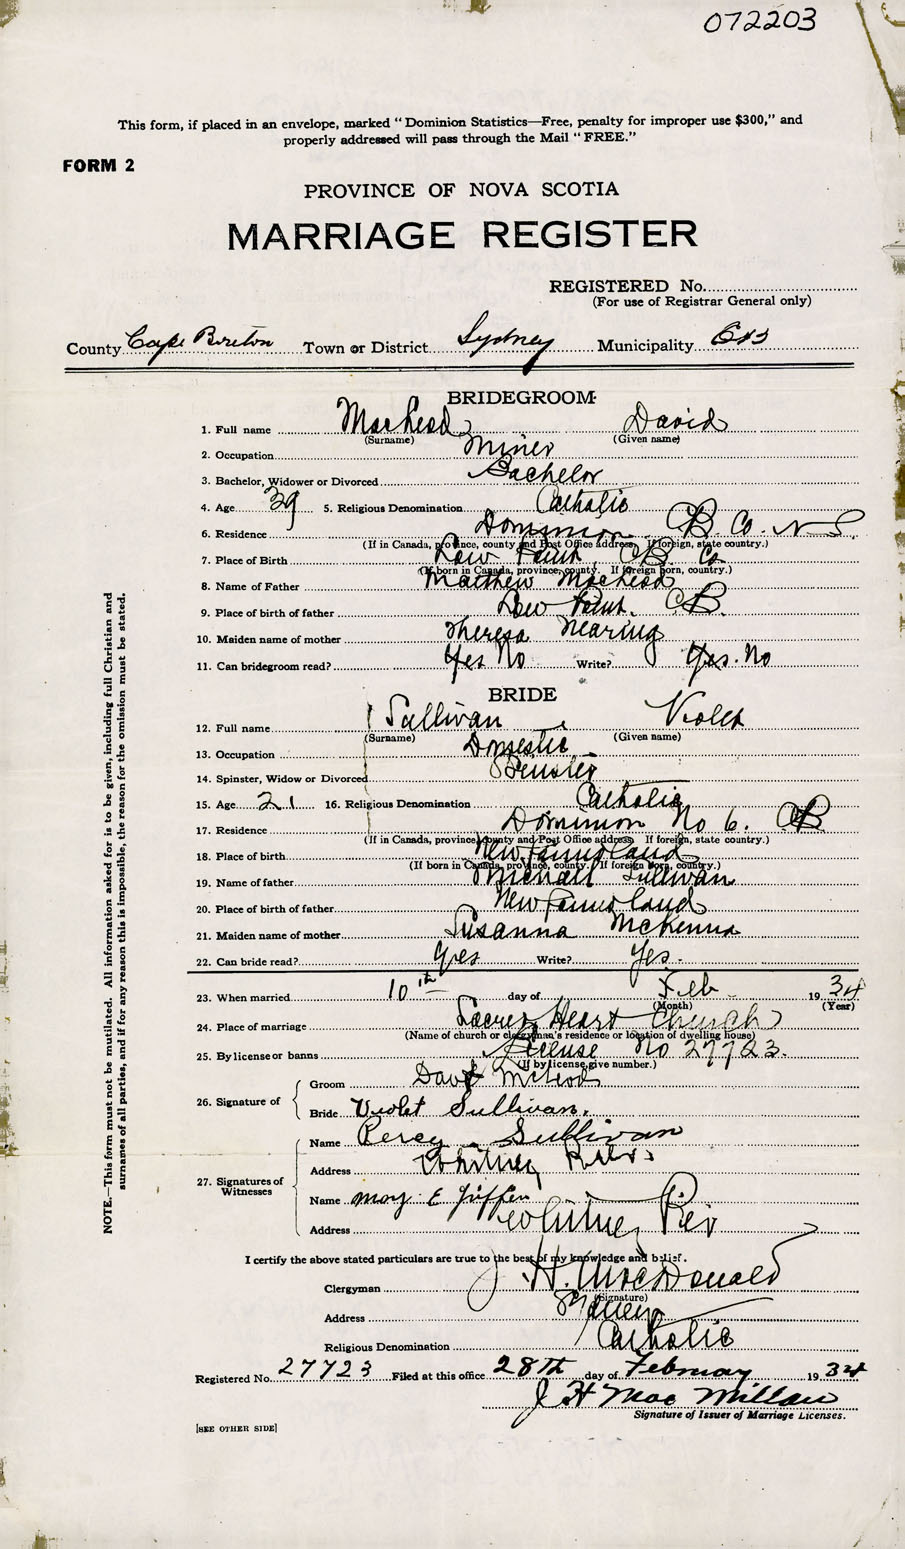 072203
This form, if placed in an envelope, marked "Dominion Statistics—Free, penalty for improper use $300," and
properly addressed will pass through the Mail "FREE."
FORM 2
PROVINCE OF NOVA SCOTIA
MARRIAGE REGISTER
REGISTERED No.
(For use of Registrar General only)
County Cape Breton Town or District Sydney Municipality
BRIDEGROOM
1. Full name MacLeod David
(Surname) (Given name)
2. Occupation Miner
3. Bachelor, Widower or Divorced Bachelor
4. Age 39 5. Religious Denomination Catholic
6. Residence Dominion C.B. Co. N S
(If in Canada, province, county and Post Office address. If foreign, state country.)
7. Place of Birth Low Point C.B. Co.
(If born in Canada, province, county. If foreign born, country.)
8. Name of Father Matthew MacLeod
9. Place of birth of father Low Point. CB
10. Maiden name of mother Theresa Nearing
11. Can bridegroom read? Yes No Write? Yes. No
BRIDE
12. Full name Sullivan Violet
(Surname) (Given name)
13. Occupation Domestic
14. Spinster, Widow or Divorced Spinster
15. Age 21 16. Religious Denomination Catholic
17. Residence Dominion No 6. CB
(If in Canada, province, county and Post Office address. If foreign, state country.)
18. Place of birth Newfoundland
(If born in Canada, province, county. If foreign born, country.)
19. Name of father Michael Sullivan
20. Place of birth of father Newfoundland
21. Maiden name of mother Susanna McKenna
22. Can bride read? Yes Write? Yes.
23. When married 10th day of Feb 1934
(Month) (Year)
24. Place of marriage Sacred Heart Church
(Name of church or clergyman's residence or location of dwelling house)
25. By license or banns License No 27723.
(If by license, give number.)
26. Signature of
Groom David McLeod
Bride Violet Sullivan.
27. Signatures of Witnesses
Name Percy Sullivan
Address Whitney Pier.
Name Mary E
Address Whitney Pier
I certify the above stated particulars are true to the best of my knowledge and belief.
Clergyman J. H. MacDonald
(Signature)
Address Sydney
Religious Denomination Catholic
Registered No. 27723 Filed at this office 28th day of February 1934
J H MacMillan
Signature of Issuer of Marriage Licenses.
[SEE OTHER SIDE]
NOTE.—This form must not be mutilated. All information asked for is to be given, including full Christian and
surnames of all parties, and if for any reason this is impossible, the reason for the omission must be stated.